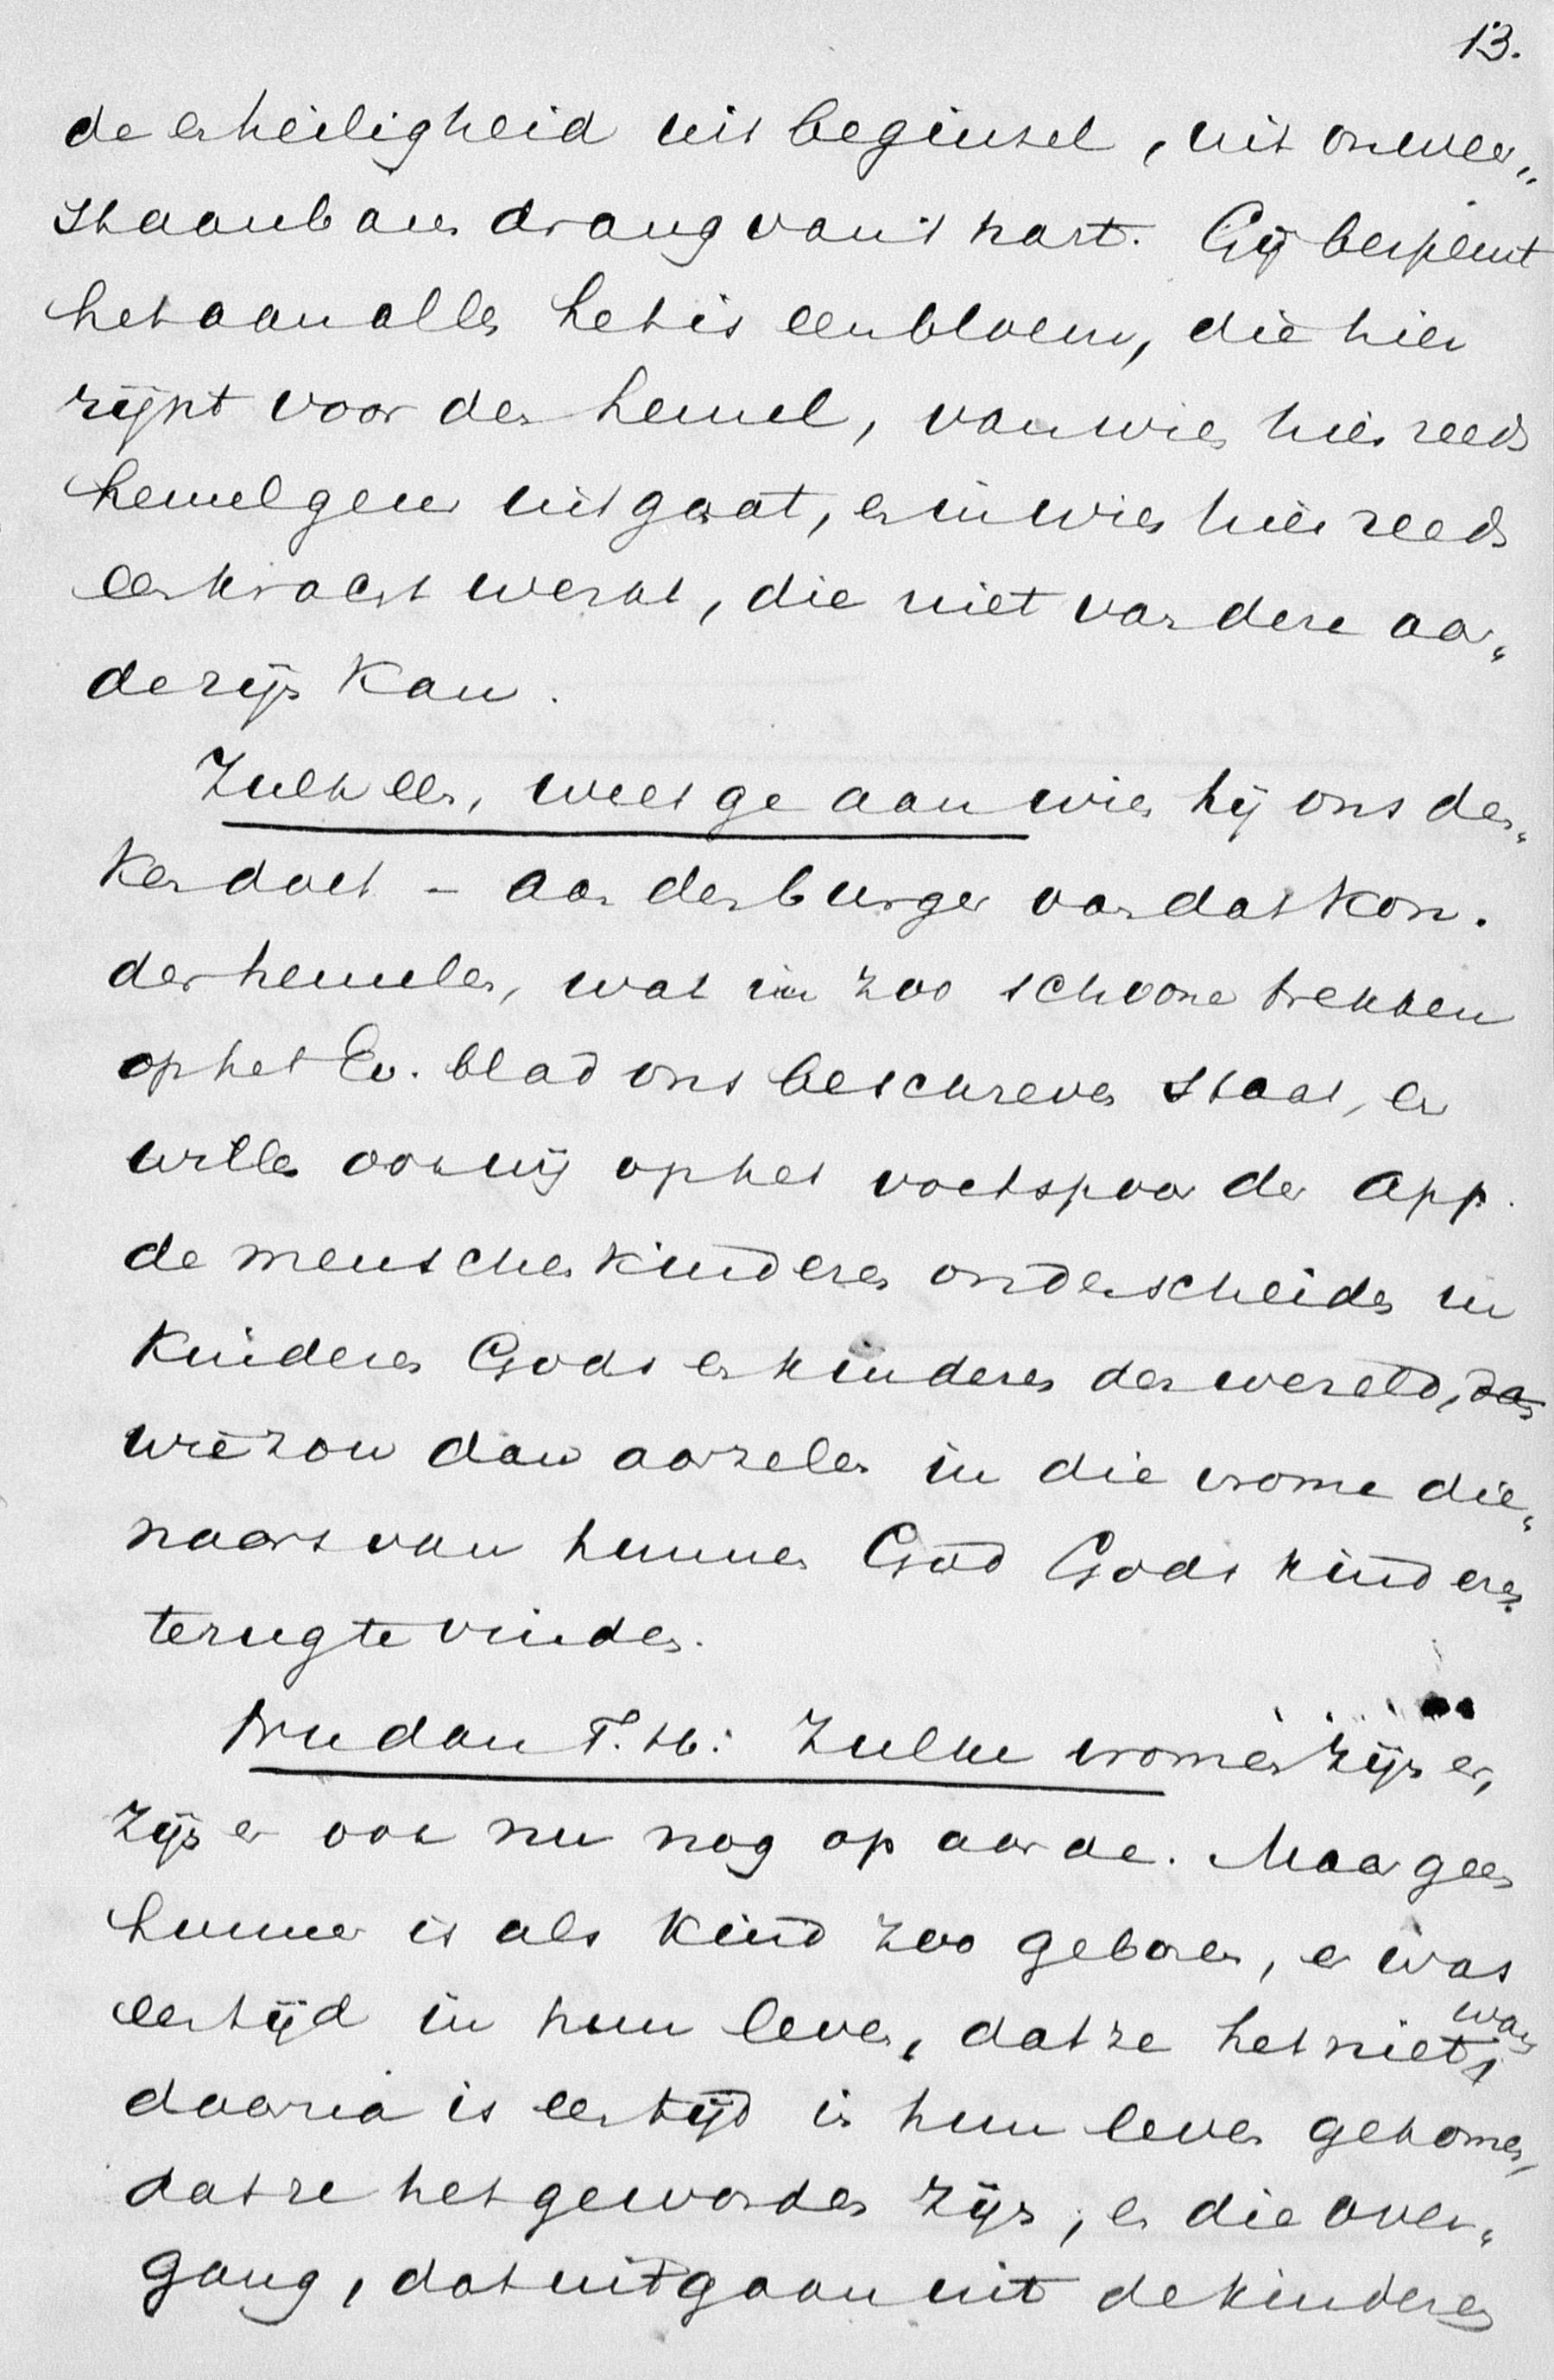 13.
de en heiligheid uit beginsel, uit onweer„
staanbaren drang van 't hart. Gij bespeurt
het aan alles het is een bloem, die hier
rijpt voor den hemel, van wien hier reeds
hemelgeur uitgaat, en in wien hier reeds
een kracht werkt, die niet van deze aar„
de zijn kan.
Zulk een, weet ge aan wien hij ons den„
ken doet – aan den burger van dat Kon.
der hemelen, wat in zoo schoone trekken
op het Ev. blad ons beschreven staat, en
willen ook wij op het voetspoor der App.
de menschenkinderen onderscheiden in
Kinderen Gods en kinderen der wereld, dan
wie zou dan aarzelen in die vrome die„
naars van hunnen God Gods kinderen
terug te vinden.
Nu dan T. H.: Zulke vromen zijn er,
zijn er ook nu nog op aarde. Maar geen
hunner is als kind zoo geboren, er was
een tijd in hun leven, dat ze het niet waren
daarna is een tijd in hun leven gekomen,
dat ze het geworden zijn, en die over„
gang, dat uitgaan uit de kinderen